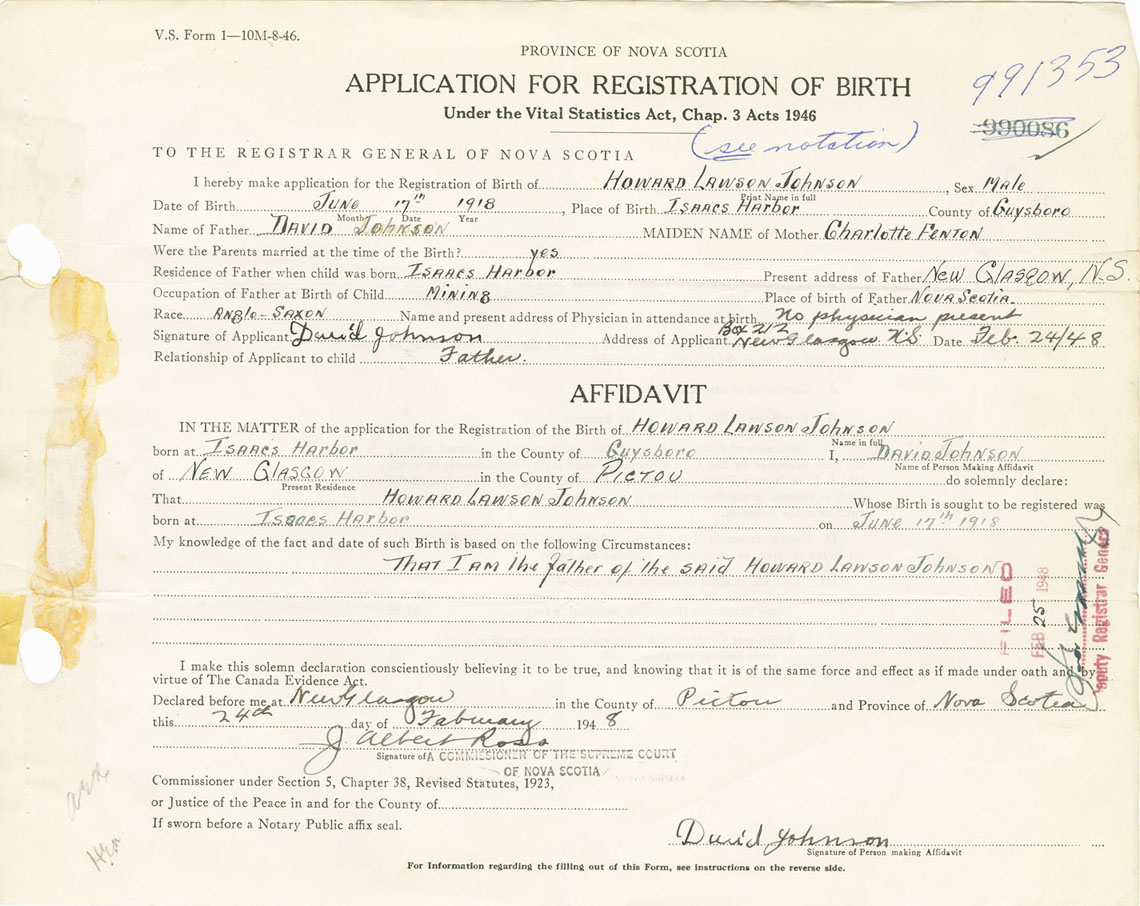 V.S. Form 1—10M-8-46.
PROVINCE OF NOVA SCOTIA
991353
APPLICATION FOR REGISTRATION OF BIRTH
Under the Vital Statistics Act, Chap. 3 Acts 1946
990086
(see notation)
TO THE REGISTRAR GENERAL OF NOVA SCOTIA
I hereby make application for the Registration of Birth of HOWARD LAWSON JOHNSON, Sex Male
Print Name in full
Date of Birth JUNE 17th 1918, Place of Birth ISAACS HARBOR County of Guysboro
Month Date Year
Name of Father DAVID JOHNSON MAIDEN NAME of Mother Charlotte FENTON
Were the Parents married at the time of the Birth? yes
Residence of Father when child was born ISAACS HARBOR Present address of Father NEW GLASGOW, N.S.
Occupation of Father at Birth of Child MINING Place of birth of Father NOVA SCOTIA
Race ANGLO-SAXON Name and present address of Physician in attendance at birth No physician present
Signature of Applicant David Johnson Address of Applicant Box 212 New Glasgow N.S. Date Feb. 24/48
Relationship of Applicant to child Father.
AFFIDAVIT
IN THE MATTER of the application for the Registration of the Birth of HOWARD LAWSON JOHNSON
Name in full
born at ISAACS HARBOR in the County of Guysboro I, DAVID JOHNSON
Name of Person Making Affidavit
of NEW GLASGOW in the County of PICTOU do solemnly declare:
Present Residence
That HOWARD LAWSON JOHNSON Whose Birth is sought to be registered was
born at ISAACS HARBOR on JUNE 17th 1918
My knowledge of the fact and date of such Birth is based on the following Circumstances:
THAT I AM the father of the said HOWARD LAWSON JOHNSON
FILED
FEB 25 1948
Deputy Registrar General
I make this solemn declaration conscientiously believing it to be true, and knowing that it is of the same force and effect as if made under oath and by
virtue of The Canada Evidence Act.
Declared before me at New Glasgow in the County of Pictou and Province of Nova Scotia
this 24th day of February 1948
J Albert Ross
Signature of A COMMISSIONER OF THE SUPREME COURT
OF NOVA SCOTIA
Commissioner under Section 5, Chapter 38, Revised Statutes, 1923,
or Justice of the Peace in and for the County of
If sworn before a Notary Public affix seal.
David Johnson
Signature of Person making Affidavit
For Information regarding the filling out of this Form, see instructions on the reverse side.